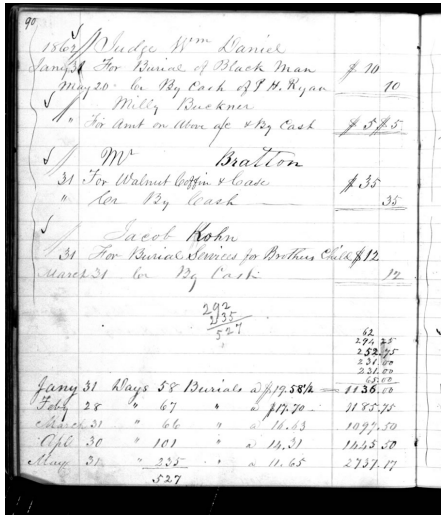 90
1862 Judge Wm Daniel
Jany 31 For Burial of Black Man $10
May 20 Cr By Cash of P H. Ryan 10
Milly Buckner
" For Amt on Abov a/c & By Cash $5 $5
Mr Bratton
31 For Walnut Coffin & Case $35
" Cr By Cash 35
Jacob Kohn
31 For Burial Services for Brothers Child $12
March 31 Cr By Cash 12
292
235
527
62
294 25
252 75
231 00
231 00
65 00
Jany 31 Days 58 Burials a $19,58 1/2 1136,00
Feby 28 " 67 " a $17.70 1185.75
March 31 " 66 " a 16.63 1097.50
Apl 30 " 101 " a 14.31 1445.50
May 31 " 235 " a 11.65 2737.17
527